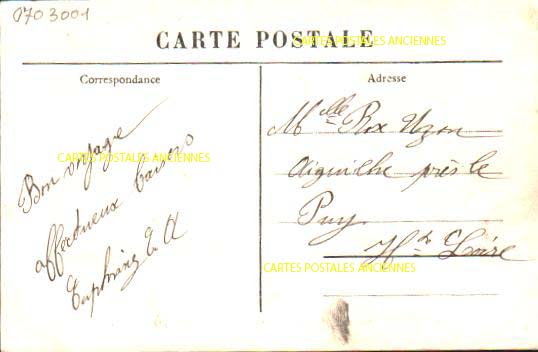 0703001
CARTE POSTALE
CARTES POSTALES ANCIENNES
Correspondance
Adresse
Bon voyage
CARTES POSTALES ANCIENNES
affectueux baisers
Mlle Rox Uzon
Aiguilhe près le
Puy
Hte Loire
CARTES POSTALES ANCIENNES